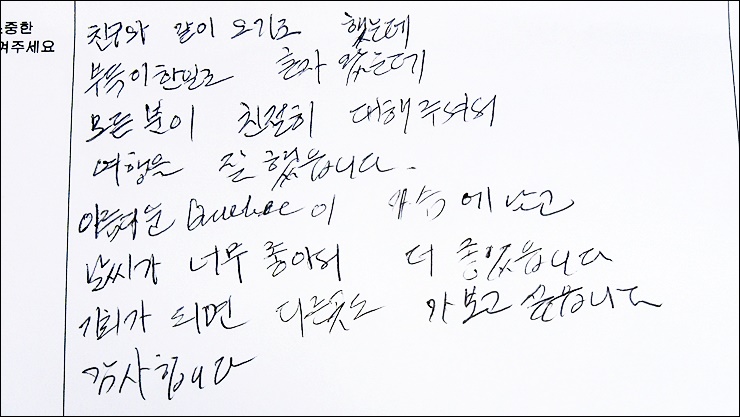 소중한
겨주세요
친구와 같이 오기로 했는데
부득이한일로 혼자 왔는데
모든 분이 친절히 대해주셔서
여행을 잘 했읍니다.
아름다운 Quebec이 마음에 남고
날씨가 너무 좋아서 더 좋았읍니다
기회가 되면 다른곳도 가보고 싶습니다
감사합니다